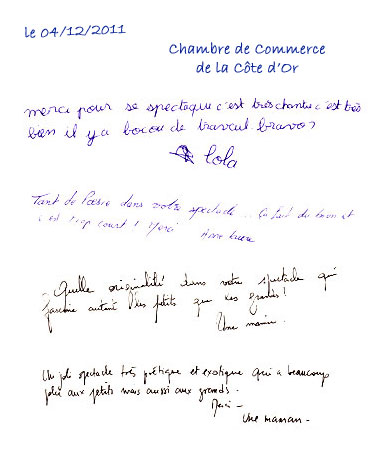 le 04/12/2011
Chambre de Commerce
de la Côte d'Or
merci pour se spectaque c'est très chante c'est très
bien il y a bocou de travail bravo
lola
Tant de Poésie dans votre spectacle... ça fait du bien et
c'est trop court ! Merci Anne Laure
- Quelle originalité dans votre spectacle qui
fascine autant les petits que les grands !
Une mamie.
Un joli spectacle très poétique et exotique qui a beaucoup
plu aux petits mais aussi aux grands -
Merci -
Une maman -